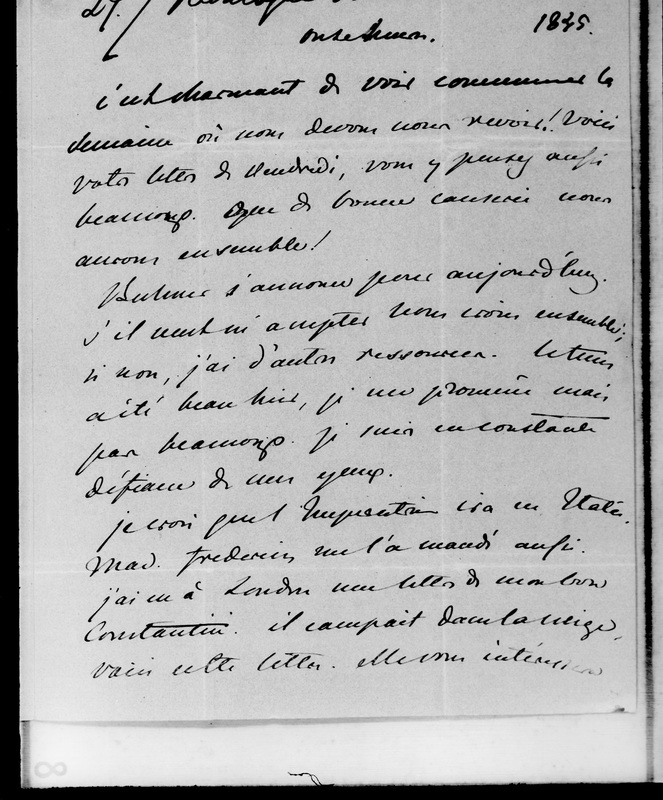 29. /
onze heures. 1845.
c'est charmant de voir commencer la
semaine où nous devons nous revoir! Voici
votre lettre de Vendredi, vous y pensez aussi
beaucoup. que de bonne causerie nous
aurons ensemble!
Bulmer s'annonce pour aujourd'huy.
s'il veut m'accepter nous irons ensemble;
si non, j'ai d'autres ressources. le tems
a été beau hier, je me promène mais
pas beaucoup. je suis en constante
défiance de mes yeux.
je crois que l'Impératrice ira en Italie.
Mad. Frederics me l'a mandé aussi.
j'ai eu à Londres une lettre de mon bon
Constantin. il campait dans la neige,
voici cette lettre. elle vous intéressera